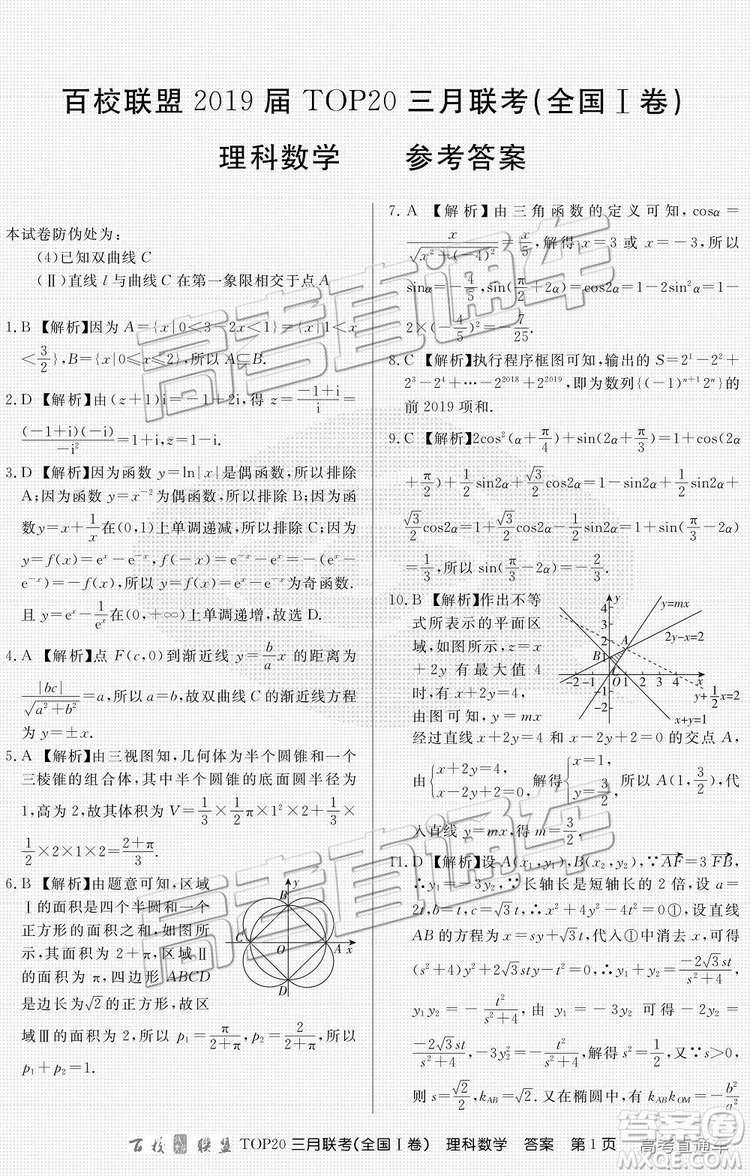 百校联盟 2019 届 TOP20 三月联考(全国Ⅰ卷)
理科数学 参考答案
本试卷防伪处为:
(4)已知双曲线 C
(Ⅱ)直线 l 与曲线 C 在第一象限相交于点 A
1. B 【解析】因为 A={x|0<3-2x<1}={x|1<x
<3/2}, B={x|0≤x≤2}, 所以 A⊆B.
2. D 【解析】由(z+1)i=-1+2i, 得 z=(-1+i)/i=
(-1+i)(-i)/(-i²)=1+i, 所以 z̄=1-i.
3. D 【解析】因为函数 y=ln|x|是偶函数, 所以排除
A; 因为函数 y=x⁻²为偶函数, 所以排除 B; 因为函
数 y=x+1/x在(0,1)上单调递减, 所以排除 C; 因为
y=f(x)=eˣ-e⁻ˣ, 所以 f(-x)=e⁻ˣ-eˣ=-(eˣ-
e⁻ˣ)=-f(x), 所以 y=f(x)=eˣ-e⁻ˣ为奇函数.
且 y=eˣ-1/eˣ在(0,+∞)上单调递增, 故选 D.
4. A 【解析】点 F(c,0)到渐近线 y=b/a x 的距离为
|bc|/√(a²+b²)=a, 所以 a=b, 故双曲线 C 的渐近线方程
为 y=±x.
5. A 【解析】由三视图知, 几何体为半个圆锥和一个
三棱锥的组合体, 其中半个圆锥的底面圆半径为
1, 高为 2, 故其体积为 V=1/3×1/2π×1²×2+1/3×
1/2×2×1×2=(2+π)/3.
6. B 【解析】由题意可知, 区域
Ⅰ的面积是四个半圆和一个
正方形的面积之和, 如图所
示, 其面积为 π+2, 区域Ⅱ
的面积为 π, 四边形 ABCD
是边长为√2的正方形, 故区
B
C O A x
D
域Ⅲ的面积为 2, 所以 p₁=π/(2+π), p₂=2/(2+π), 所以 p₁
+p₂=1.
7. A 【解析】由三角函数的定义可知, cosα=
x/√(x²+(-4)²)=x/5, 解得 x=3 或 x=-3, 所以
sinα=-4/5, sin(π/2+2α)=cos2α=1-2sin²α=1-
2×(-4/5)²=-7/25.
8. C 【解析】执行程序框图可知, 输出的 S=2¹-2²+
2³-2⁴+…-2²⁰¹⁸+2²⁰¹⁹, 即为数列{(-1)ⁿ⁺¹2ⁿ}的
前 2019 项和.
9. C 【解析】2cos²(α+π/4)+sin(2α+π/3)=1+cos(2α
+π/2)+1/2sin2α+√3/2cos2α=1-sin2α+1/2sin2α+
√3/2cos2α=1-1/2sin2α+√3/2cos2α=1+sin(π/3-2α)
=1/3, 所以 sin(π/3-2α)=-2/3.
10. B 【解析】作出不等
式所表示的平面区
域, 如图所示, z=x
+2y 有最大值 4
时, 有 x+2y=4,
由图可知, 直线
y
4
3
2
1
-2 -1 O 1 2 3 4 x
y=mx
2y-x=2
y+1/2x=2
x+y=1
经过直线 x+2y=4 和 x-2y+2=0 的交点 A,
由{x+2y=4, x-2y+2=0 解得{x=1, y=3/2, 所以 A(1,3/2), 代
入直线 y=mx 得 m=3/2.
11. D 【解析】设 A(x₁,y₁), B(x₂,y₂), ∵AF=3FB,
∴y₁=-3y₂, ∵长轴长是短轴长的 2 倍, 设 a=
2t, b=t, c=√3t, ∴x²+4y²-4t²=0①, 设直线
AB 的方程为 x=sy+√3t, 代入①中消去 x, 可得
(s²+4)y²+2√3sty-t²=0, ∴y₁+y₂=-2√3st/(s²+4),
y₁y₂=-t²/(s²+4), ∴-2y₂=
-2√3st/(s²+4), -3y₂²=-t²/(s²+4), 解得 s²=1/2, 又∵s>0,
则 s=√2/2, k_AB=√2. 又在椭圆中, 有 k_AB k_OM=-b²/a²
百校联盟 TOP20 三月联考(全国Ⅰ卷) 理科数学 答案 第 1 页
高考直通车
高考直通车
高考直通车